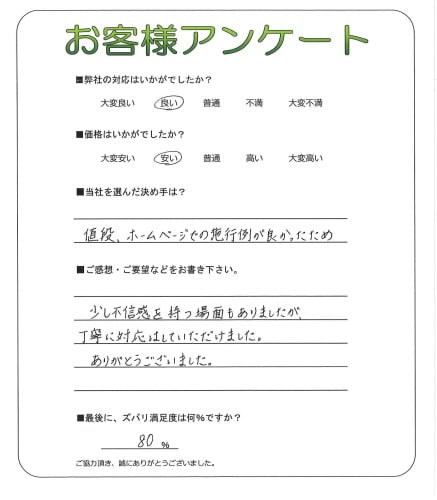 お客様アンケート
■弊社の対応はいかがでしたか？
大変良い 良い 普通 不満 大変不満
■価格はいかがでしたか？
大変安い 安い 普通 高い 大変高い
■当社を選んだ決め手は？
値段、ホームページでの施行例が良かったため
■ご感想・ご要望などをお書き下さい。
少し不信感を持つ場面もありましたが、
丁寧に対応はしていただけました。
ありがとうございました。
■最後に、ズバリ満足度は何％ですか？
80 %
ご協力頂き、誠にありがとうございました。